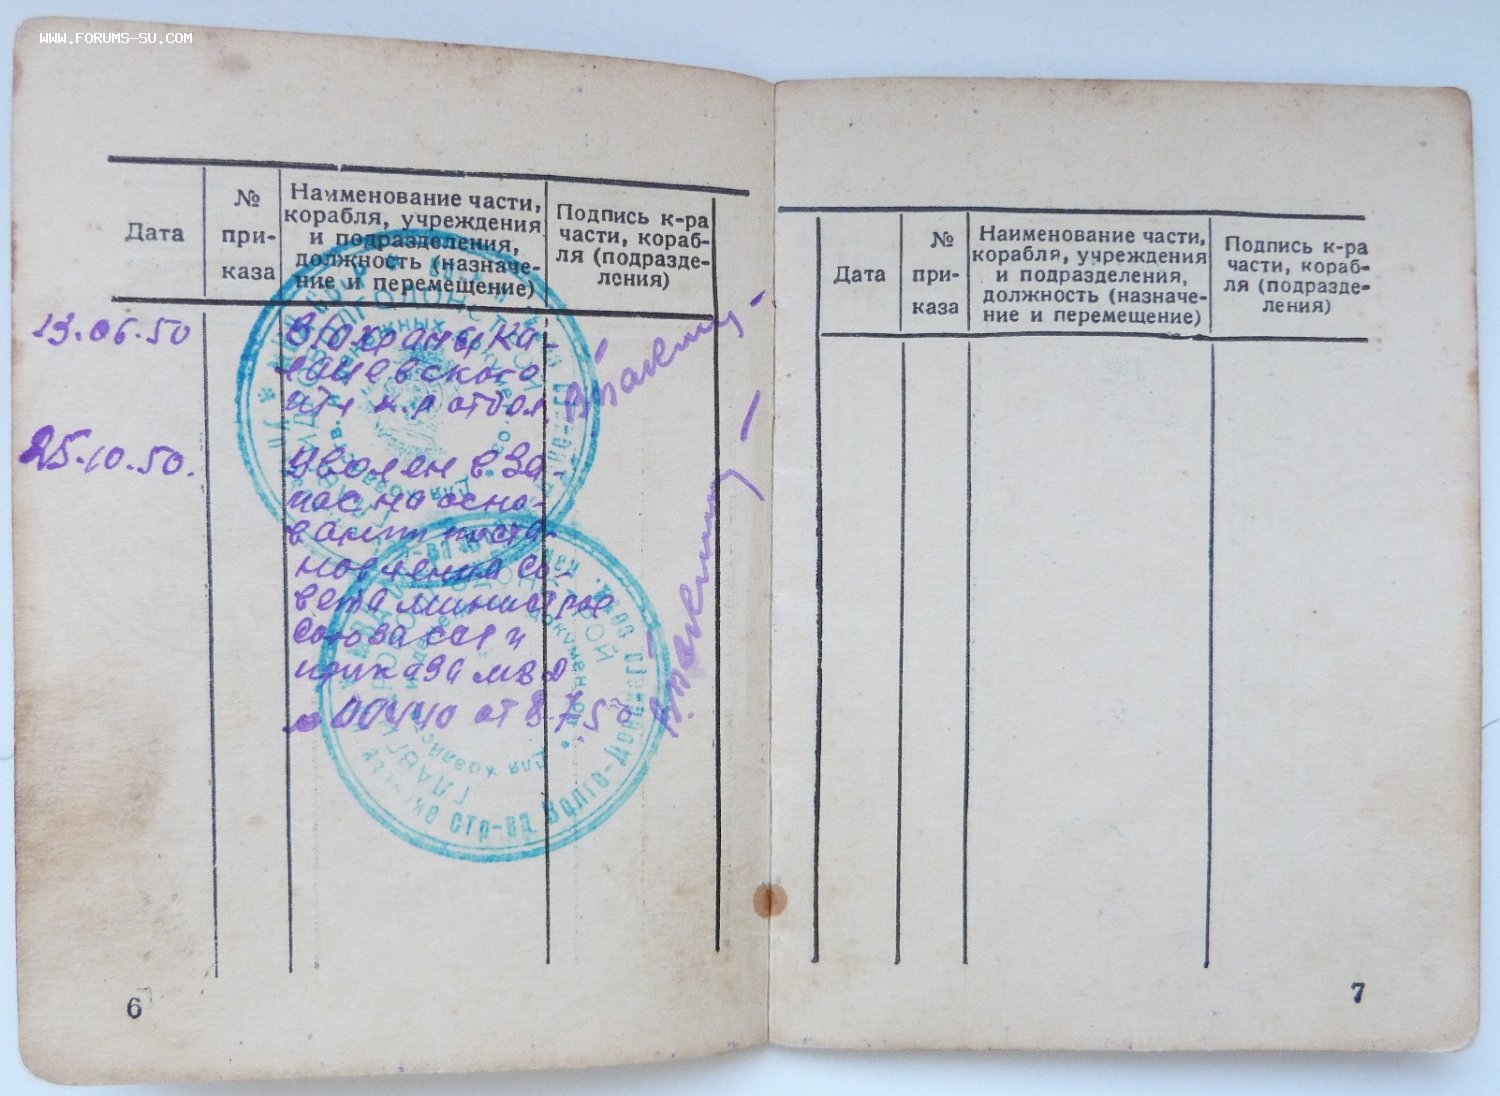 WWW.FORUMS-SU.COM
Дата
№
при-
каза
Наименование части,
корабля, учреждения
и подразделения,
должность (назначе-
ние и перемещение)
Подпись к-ра
части, кораб-
ля (подразде-
ления)
13.06.50
В/охраны Ка-
лачевского
итл к.р отдел
25.10.50.
Уволен в за-
пас на осно-
вании поста-
новления Со-
вета министров
Союза ССР и
приказа МВД
№ 00440 от 8.7.50
стр-ва Волго-Донского
ГЛАВГИДРОВОЛГОДОНСТРОЙ
6
Дата
№
при-
каза
Наименование части,
корабля, учреждения
и подразделения,
должность (назначе-
ние и перемещение)
Подпись к-ра
части, кораб-
ля (подразде-
ления)
7